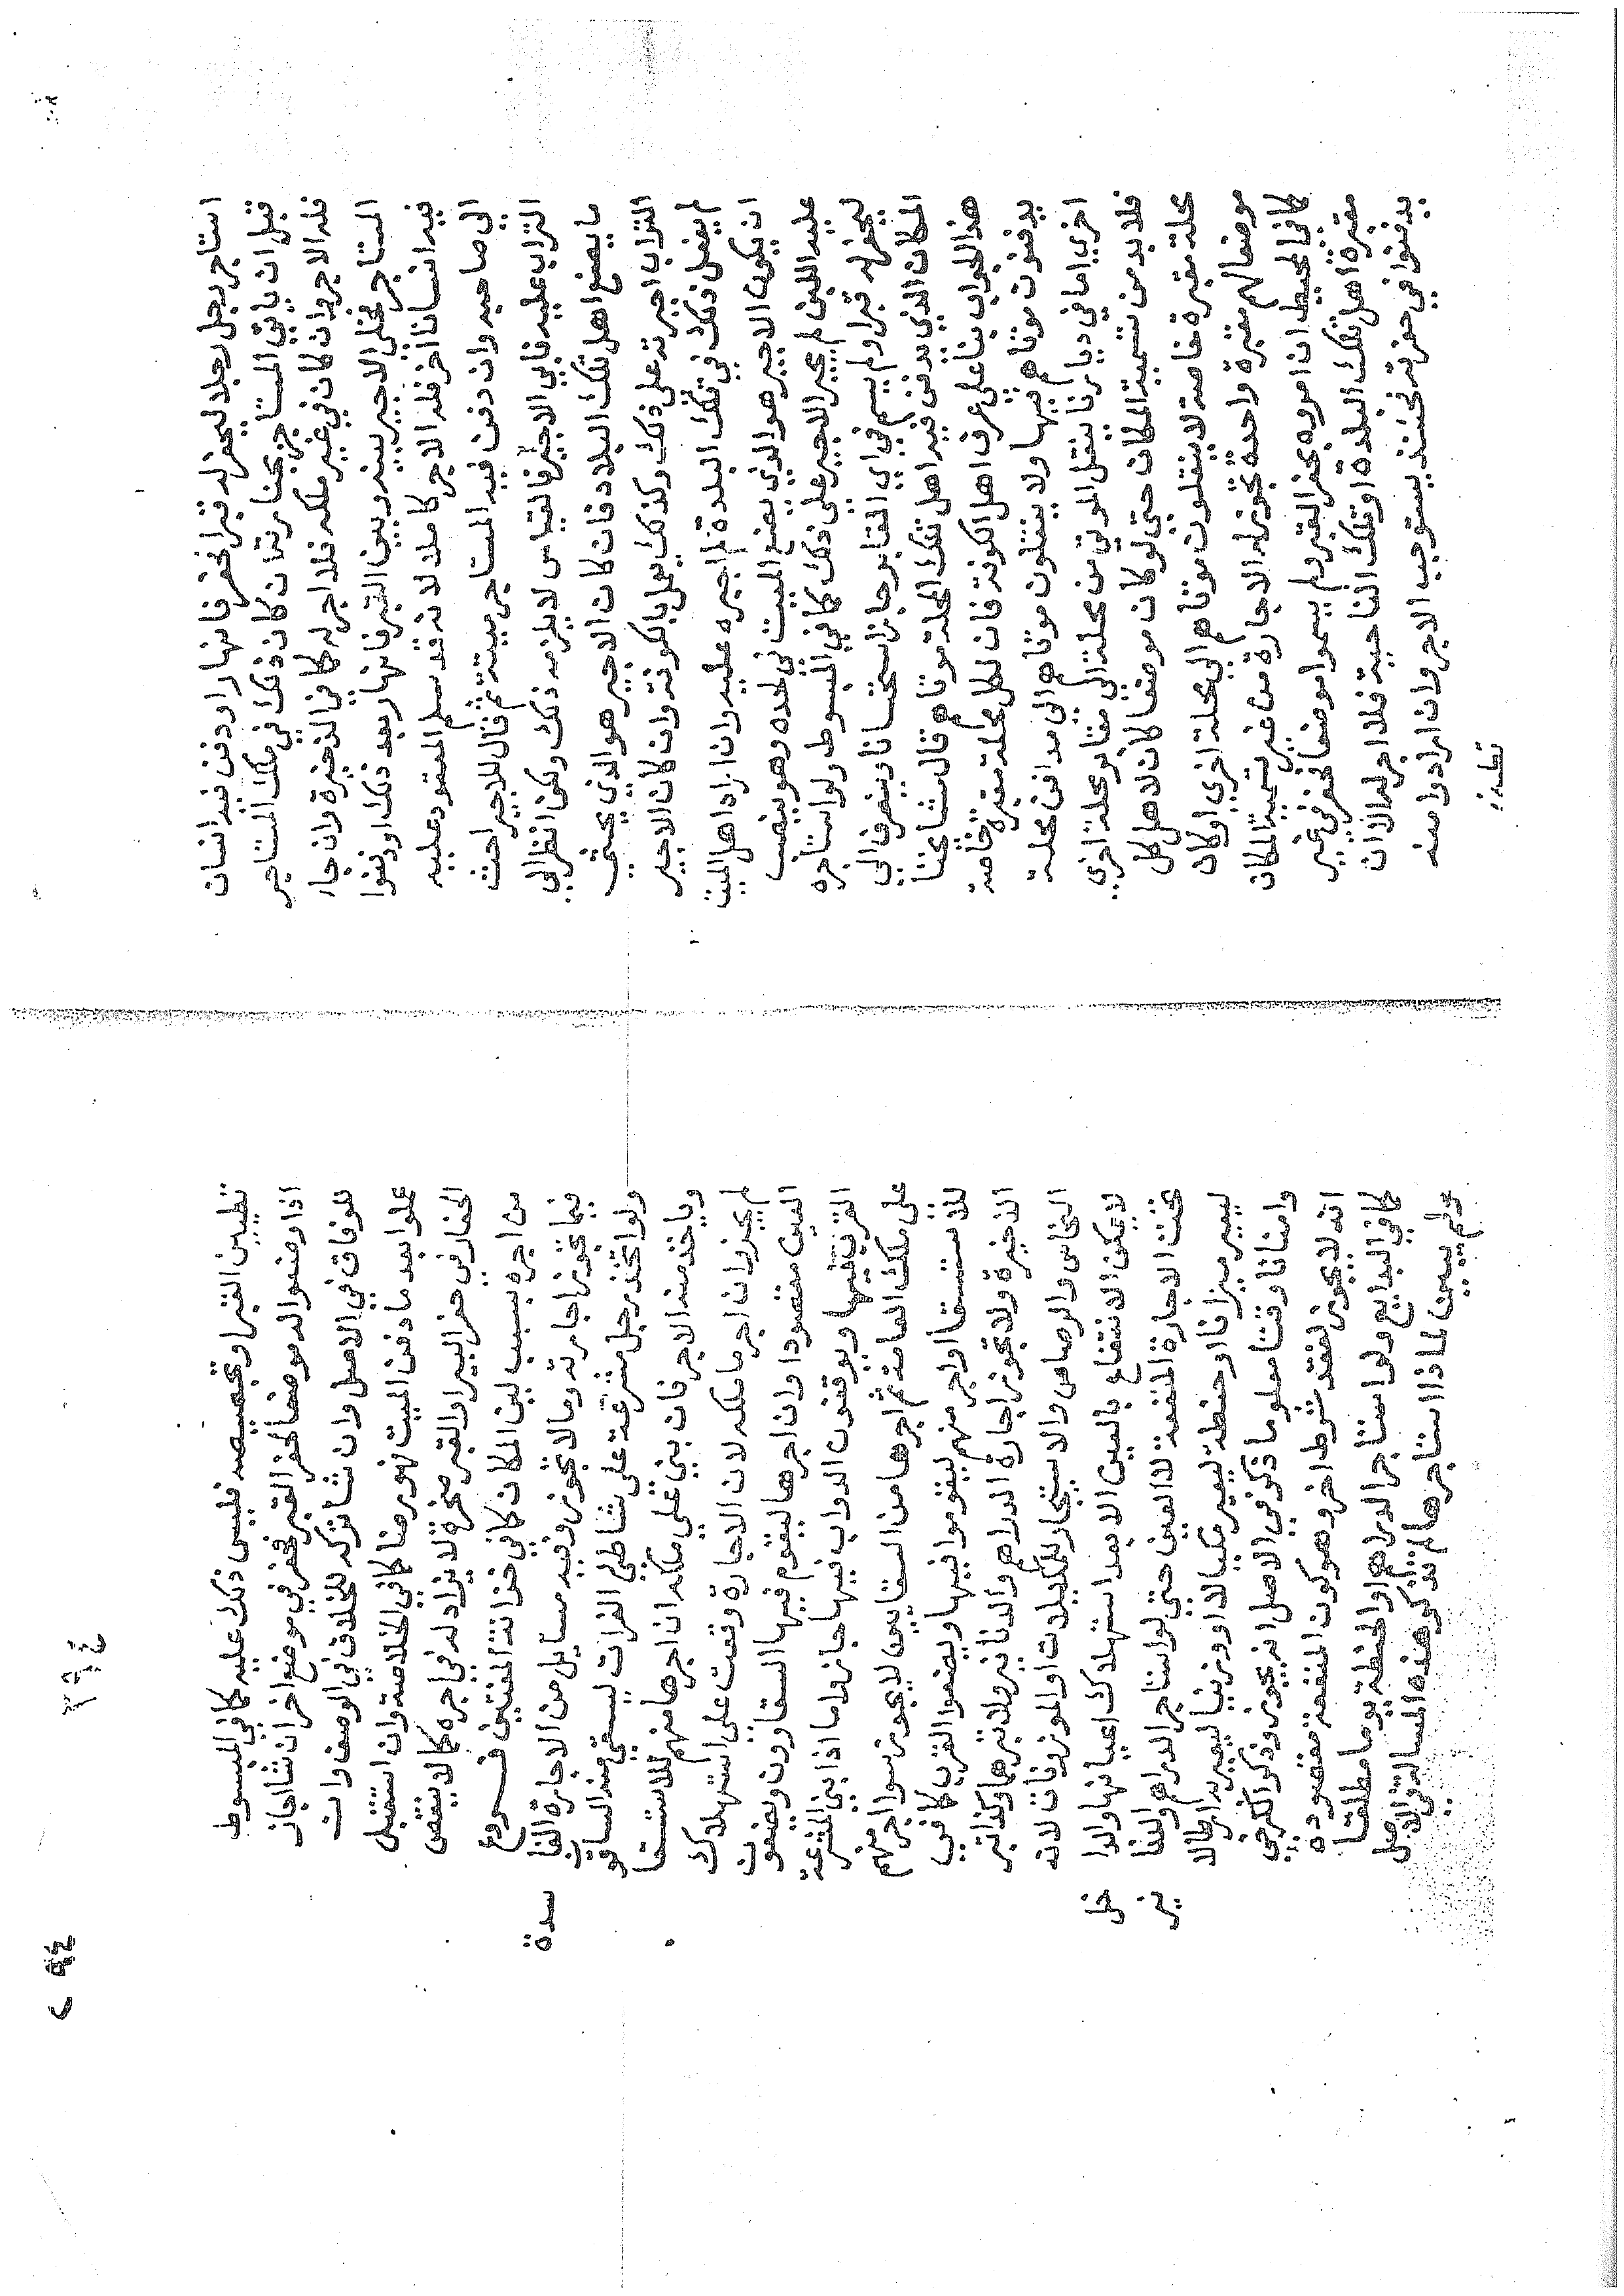 استاجر رجل رجلا ليحفر له قبرا فحفر فانهار او دفن فيه انسان
قبل ان ياتي المستاجر بجنازته ان كان ذلك في ملك المستاجر
فله الاجر وان كان في غير ملكه فلا اجر له كما في الذخيرة وان جاء
المستاجر فخلى الاجير بينه وبين القبر فانهار بعد ذلك او دفنوا
فيه انسانا اخر فله الاجر كاملا لانه قد سلم المعقود عليه
الى صاحبه وان دفن فيه المستاجر ميته ثم قال للاجير احث
التراب عليه فابى الاجير فالقياس لا يلزمه ذلك ولكن انظر الى
ما يصنع اهل تلك البلاد فان كان الاجير هو الذي يحثي
التراب اجبرته على ذلك وكذلك يعمل بالكوفة وان كان الاجير
لم يفعل ذلك في تلك البلدة لم اجبره عليه وان اراد اهل الميت
ان يكون الاجير هو الذي يضع الميت في لحده وهو ينصب
عليه اللبن لم يجبر الاجير على ذلك كما في المبسوط ولو استاجره
ليحفر له قبرا ولم يسم في اي المقابر جاز استحسانا وينصرف الى
المكان الذي يدفن فيه اهل تلك المحلة موتاهم قال مشايخنا
هذا الجواب بناء على عرف اهل الكوفة فان لكل محلة مقبرة خاصة
يدفنون موتاهم فيها ولا ينقلون موتاهم الى مدافن محلة
اخرى اما في ديارنا ينقل الموتى من محلة الى مقابر محلة اخرى
فلا بد من تسمية المكان حتى لو كان موضعا كان لاهل كل
محلة مقبرة خاصة لا ينقلون موتاهم الى محلة اخرى او كان
موضعا لهم مقبرة واحدة تجوز الاجارة من غير تسمية المكان
كما في المحيط ان امروه بحفر القبر ولم يسموا موضعا فحفر في غير
مقبرة اهل تلك البلدة او تلك الناحية فلا اجر له الا ان
يدفنوا في حفرته فحينئذ يستوجب الاجر وان ارادوا منه
تطيين
٢٩٤
٢٩٤
تطيين القبر او تجصيصه فليس ذلك عليه كما في المبسوط
اذا وصفوا له موضعا لحفر القبر فحفر في موضع اخر ان شاء اجاز
للوفاق في الاصل وان شاء تركه للخلاف في الوصف وان
علموا بعد ما دفن الميت فهو رضا كما في الخلاصة وان استقبل
الحفار في حفر البير او القبر صخرة لا يزاد له في اجره كما لا ينقص
من اجره بسبب لين المكان كما في خزانة المفتين فــروع
فيما تجوز اجارته وما لا تجوز وفيه مسايل من الاجارة الفاسدة
ولو اتخذ رجل مشرعة على شاطئ الفرات ليستقي منه السقاؤون
وياخذ منه الاجر فان بنى على ملكه ان اجرها منهم للاستقا
لم يجز وان اجر ما ملكه لان الاجارة وقعت على استهلاك
العين مقصودا وان اجرها ليقوم فيها السقاؤون ويضعون
القرب فيها ويوقفون الدواب فيها جاز واما اذا بنى المشرعة
على ملك العامة ثم اجرها من السقايين لا يجوز سوا اجر منهم
للاستسقا او اجر منهم ليقوموا فيها ويضعوا القرب كما في
الذخيرة ولا تجوز اجارة الدراهم والدنانير ولا تبرهما وكذا تبر
النحاس والرصاص ولا استيجار المكيلات والموزونات لانه
لا يمكن الانتفاع بالعين الا بعد استهلاك اعيانها والداخل
تحت الاجارة المنفعة لا العين حتى لو استاجر الدراهم والدنانير
ليعير ميزانا او حنطة ليعير مكيالا او وزنيا ليعير به ارطالا
وامنانا وقتا معلوما ذكر في الاصل انه يجوز وذكر الكرخي
انه لا يجوز لفقد شرط اخر وهو كون المنفعة مقصودة
كما في البدايع ولو استاجر الدراهم او الحنطة يوما مطلقا
ولم يبين لماذا استاجرها لم تذكر هذه المسالة في الاصل